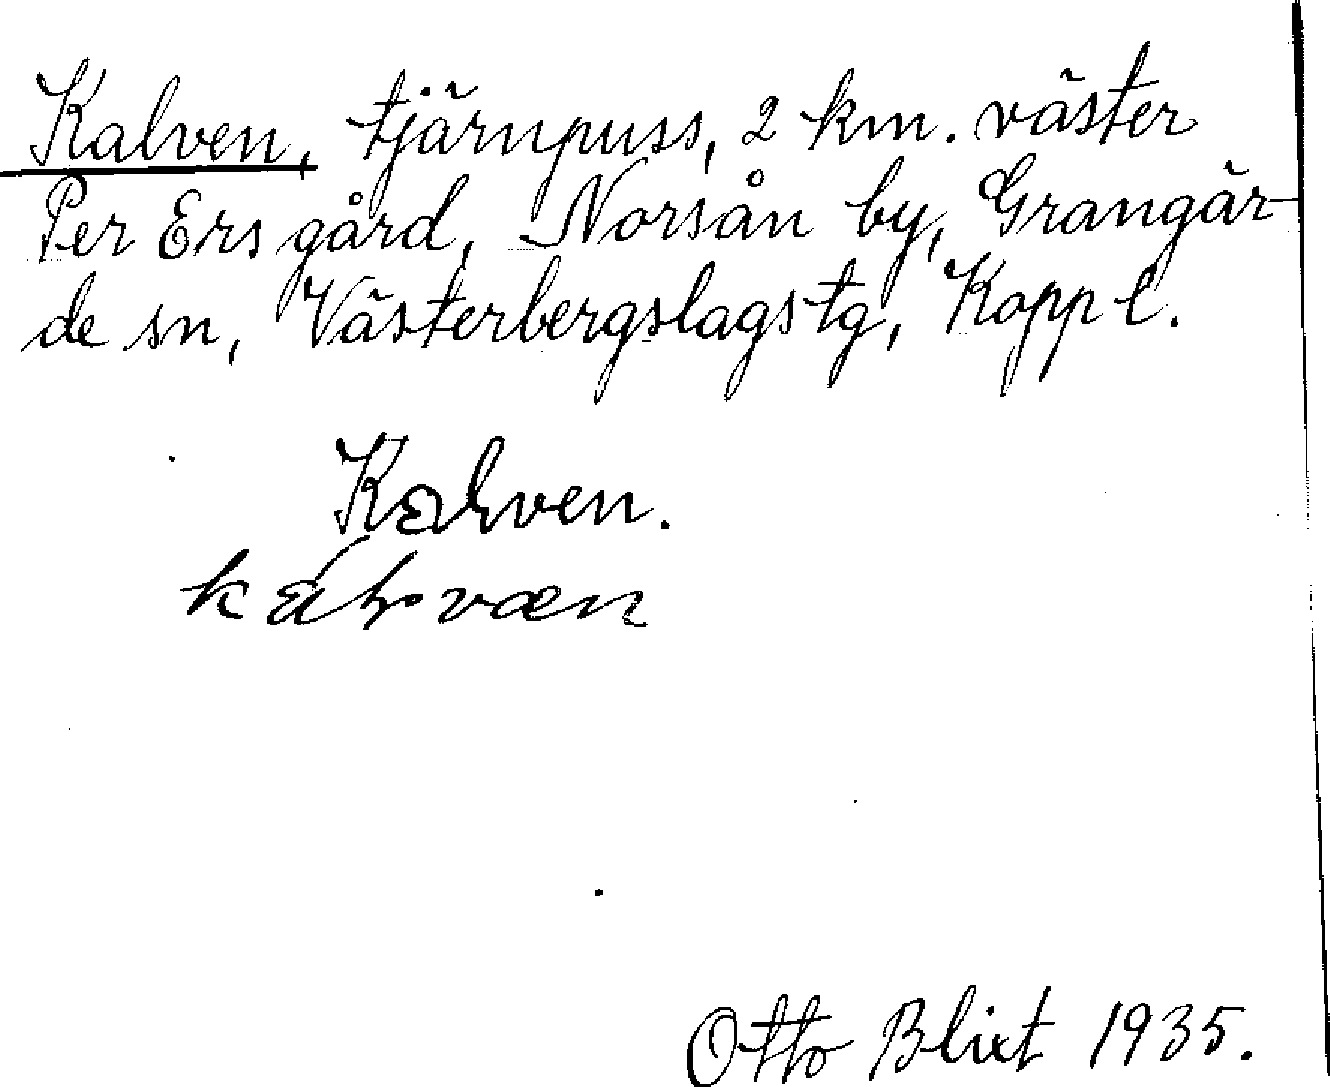 Kalven, tjärnpuss, 2 km. väster
Per Ers gård, Norsån by, Grangär-
de sn, Västerbergslags tg, Kopp l.
Kalven.
Otto Blixt 1935.